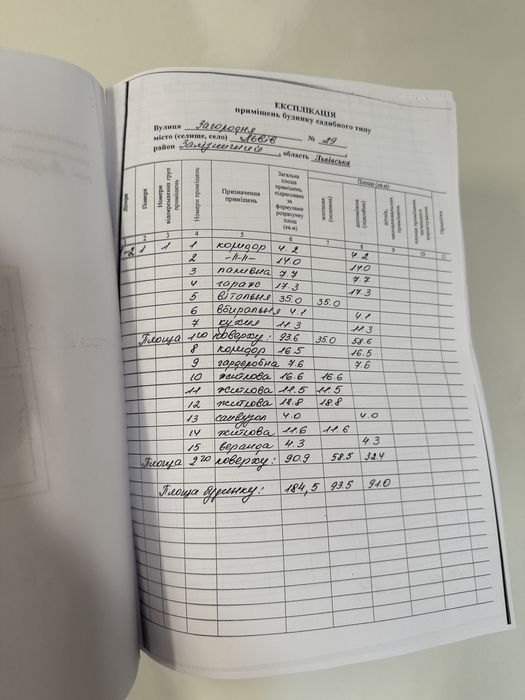 ЕКСПЛІКАЦІЯ
приміщень будинку садибного типу
Вулиця Загородня № 29
місто (селище, село) Львів
район Залізничного, область Львівська
Поверх
Номери
Номери відокремлених груп приміщень
Номери приміщень
Призначення приміщень
Загальна площа приміщень, підрахована за формулами розрахунку площ (кв.м)
Площа (кв.м)
житлова (основна)
допоміжна (підсобна)
Примітки
1 2 3 4 5 6 7 8 9 10 11
1-2 1 1 1 коридор 4.2 4.2
2 -//-//- 14.0 14.0
3 паливна 7.7 7.7
4 гараж 17.3 17.3
5 вітальня 35.0 35.0
6 вбиральня 4.1 4.1
7 кухня 11.3 11.3
Площа 1го поверху: 93.6 35.0 58.6
8 коридор 16.5 16.5
9 гардеробна 7.6 7.6
10 житлова 16.6 16.6
11 житлова 11.5 11.5
12 житлова 18.8 18.8
13 санвузол 4.0 4.0
14 житлова 11.6 11.6
15 веранда 4.3 4.3
Площа 2го поверху: 90.9 58.5 32.4
Площа будинку: 184,5 93.5 91.0